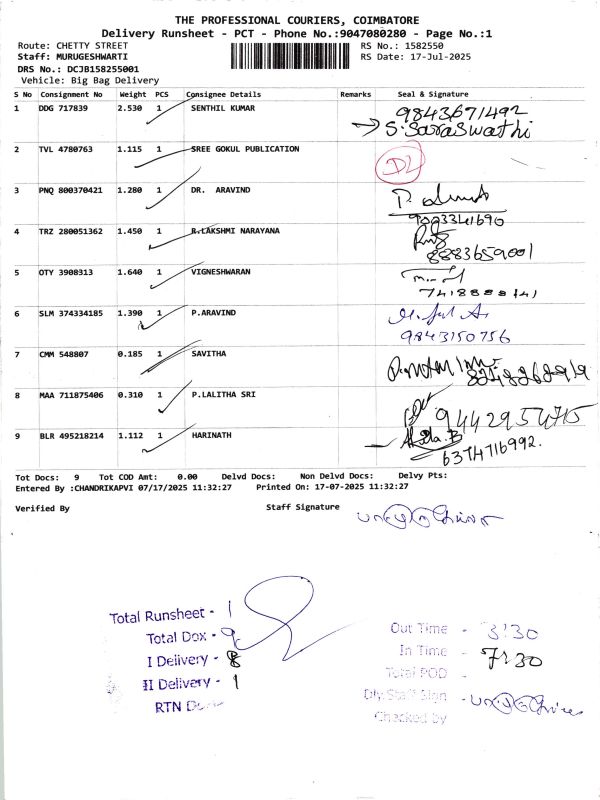 THE PROFESSIONAL COURIERS, COIMBATORE
Delivery Runsheet - PCT - Phone No.:9047080280 - Page No.:1
Route: CHETTY STREET
RS No.: 1582550
Staff: MURUGESHWARTI
RS Date: 17-Jul-2025
DRS No.: DCJB158255001
Vehicle: Big Bag Delivery
S No Consignment No Weight PCS Consignee Details Remarks Seal & Signature
1 DDG 717839 2.530 1 SENTHIL KUMAR 9843671492
S. Saraswathi
2 TVL 4780763 1.115 1 SREE GOKUL PUBLICATION DL
3 PNQ 800370421 1.280 1 DR. ARAVIND
9093341690
4 TRZ 280051362 1.450 1 R.LAKSHMI NARAYANA
8883659001
5 OTY 3908313 1.640 1 VIGNESHWARAN
6 SLM 374334185 1.390 1 P.ARAVIND
9843150756
7 CMM 548807 0.185 1 SAVITHA
8 MAA 711875406 0.310 1 P.LALITHA SRI
9442954715
9 BLR 495218214 1.112 1 HARINATH
6374716992.
Tot Docs: 9 Tot COD Amt: 0.00 Delvd Docs: Non Delvd Docs: Delvy Pts:
Entered By :CHANDRIKAPVI 07/17/2025 11:32:27 Printed On: 17-07-2025 11:32:27
Verified By Staff Signature
Total Runsheet - 1
Total Dox - 9
I Delivery - 8
II Delivery - 1
RTN
Out Time - 3:30
In Time - 7:30
Total POD -
Dly.Staff Sign -
Checked by